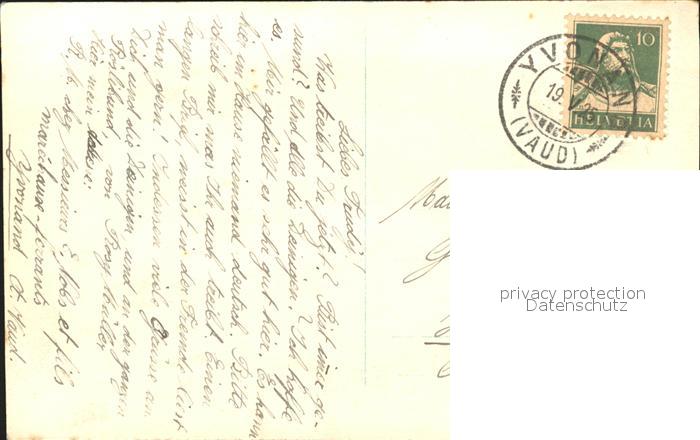 Liebes Trudy!
Was treibst Du jetzt? Bist immer ge-
sund? Und alle die Deinigen? Ich hoffe
es. Mir gefällt es sehr gut hier. Es kann
hier im Hause niemand deutsch. Bitte
schreib mir mal Ihr auch treibt. Einen
langen Brief, weisst in der Fremde liest
man gern! Indessen viele Grüsse an
Dich und die Deinigen und an den ganzen
von Rosy Müller
Hier mein
R. M. chez Messieurs E. et fils
maréchaux-ferrants
Yvonand Ct. Vaud.
YVONAN
19. V. 26
(VAUD)
10
HELVETIA
privacy protection
Datenschutz